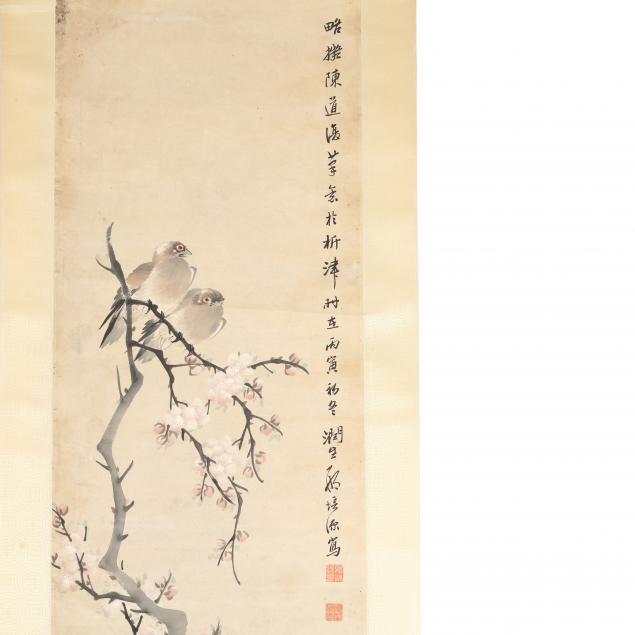 略擬陳道復筆意於析津時在丙寅初冬潤生培源寫